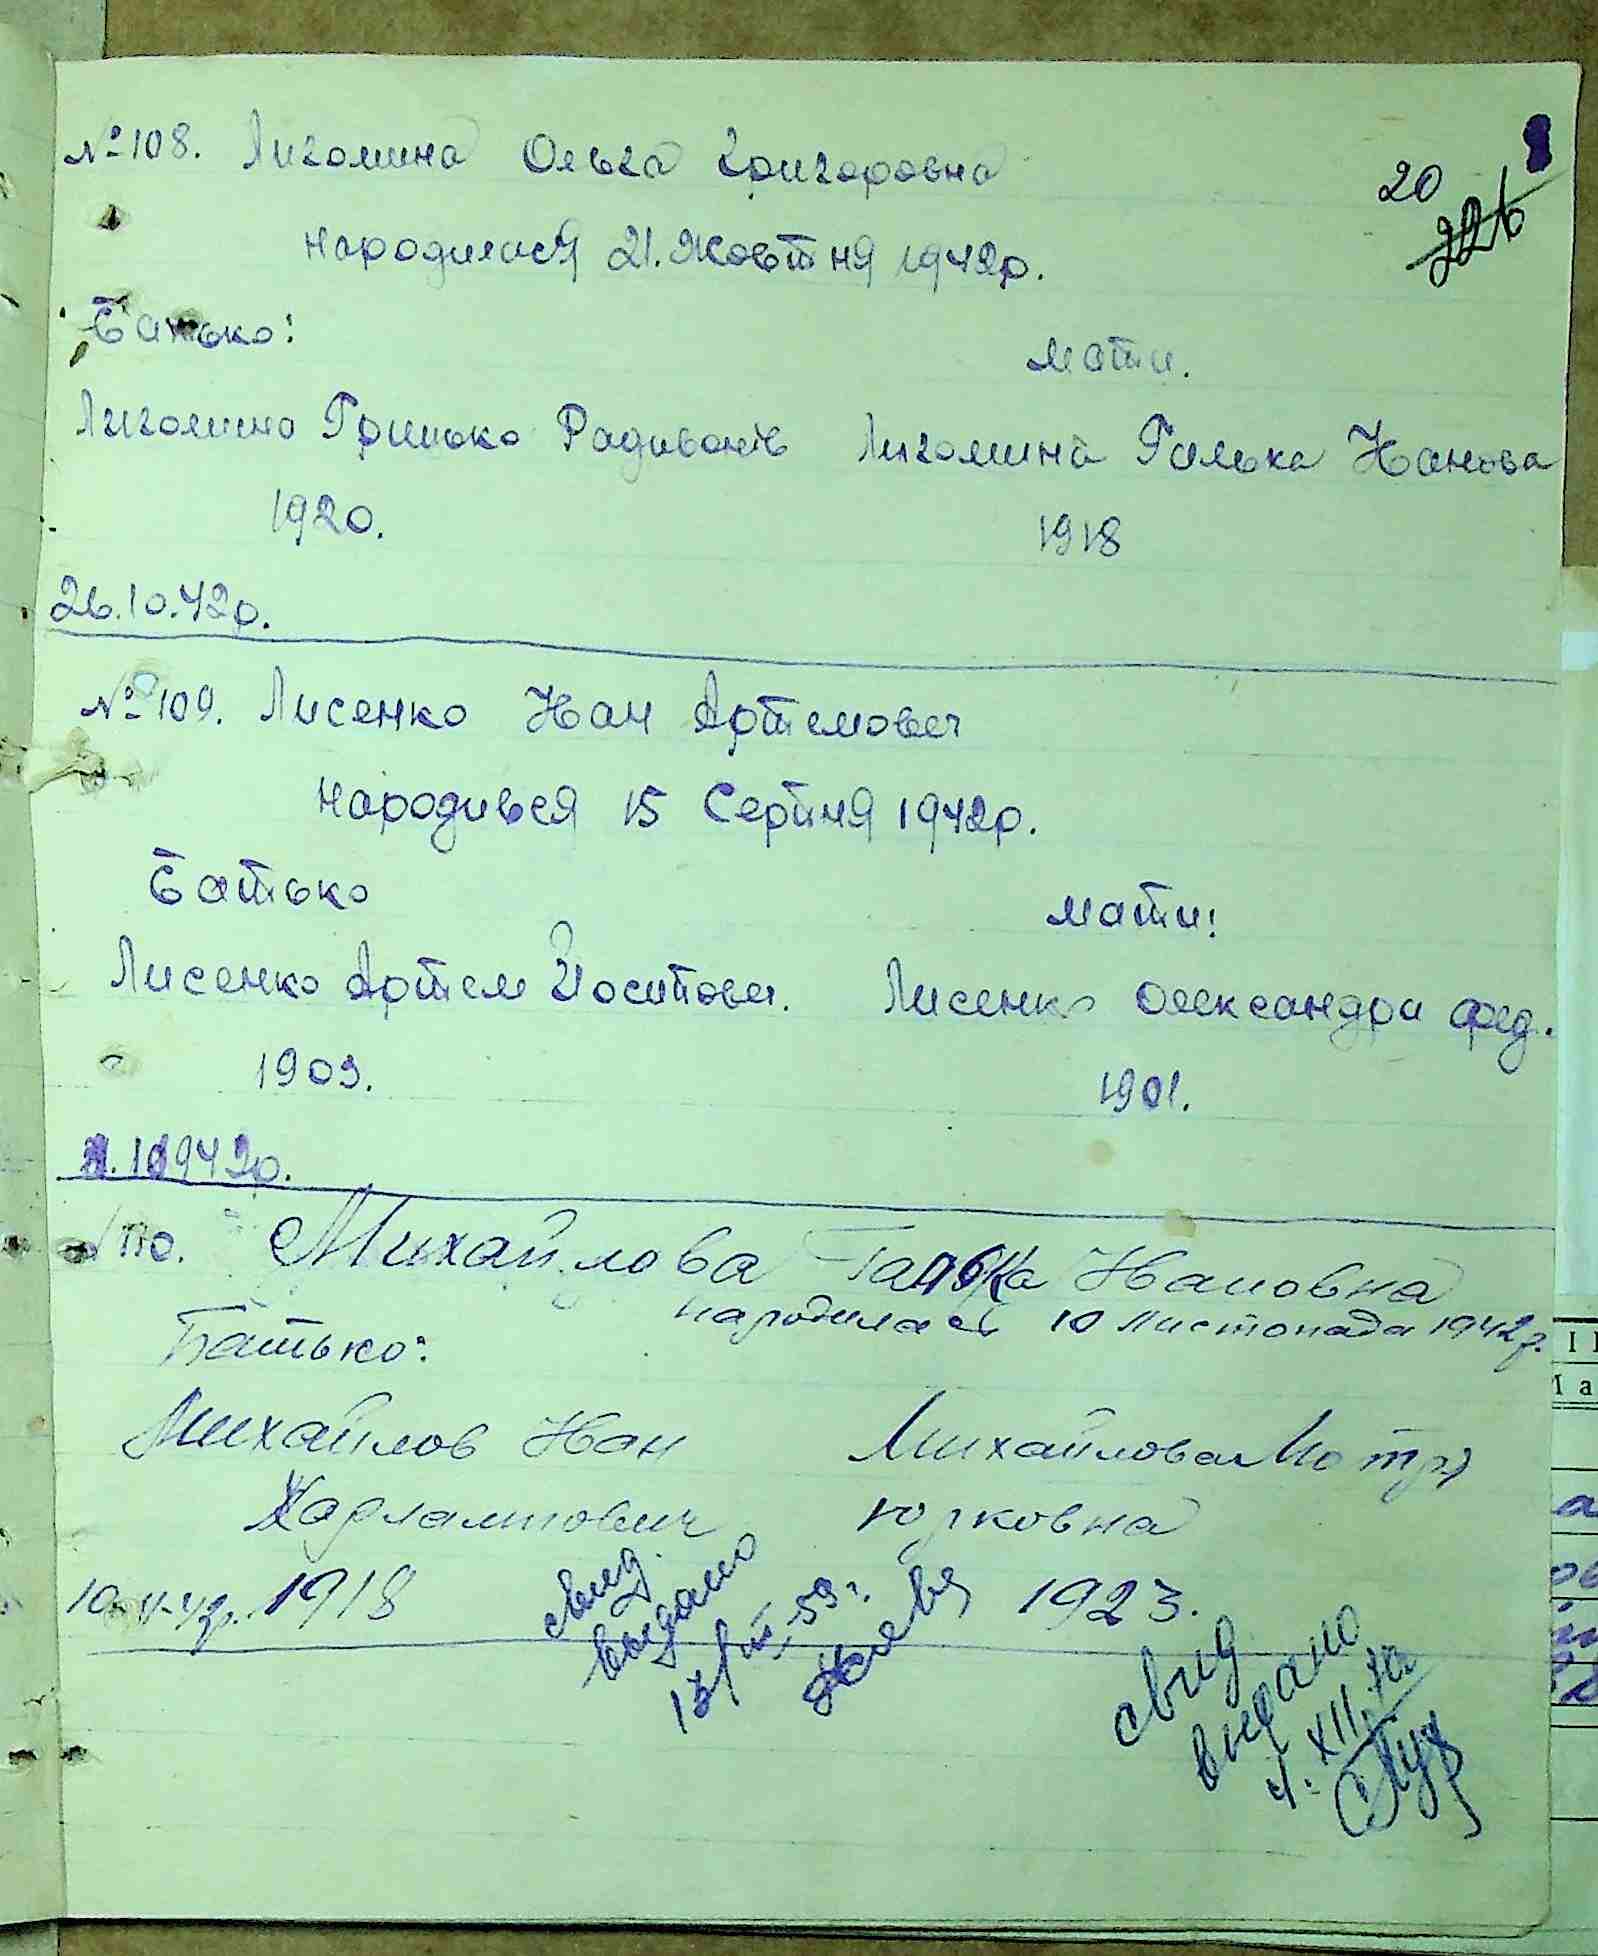 20
226
№ 108. Лигомина Ольга Григоровна
народилася 21. Жовтня 1942р.
Батько:
мати.
Лигомина Грицько Радивонів Лигомина Галька Иванова
1920. 1918
26.10.42р.
№ 109. Лисенко Иван Артемович
народився 15 Серпня 1942р.
Батько
мати:
Лисенко Артем Йосипович. Лисенко Олександра Фед.
1903. 1901.
1942р.
№ 110. Михайлова Ивановна
народилась 10 Листопада 1942р.
Батько:
Михайлов Иван Михайлова Мотря
Харлампович Юрковна
10-11-42р. 1918 1923.
свид
выдано
13/III-59г.
свид
выдано
4. XII.